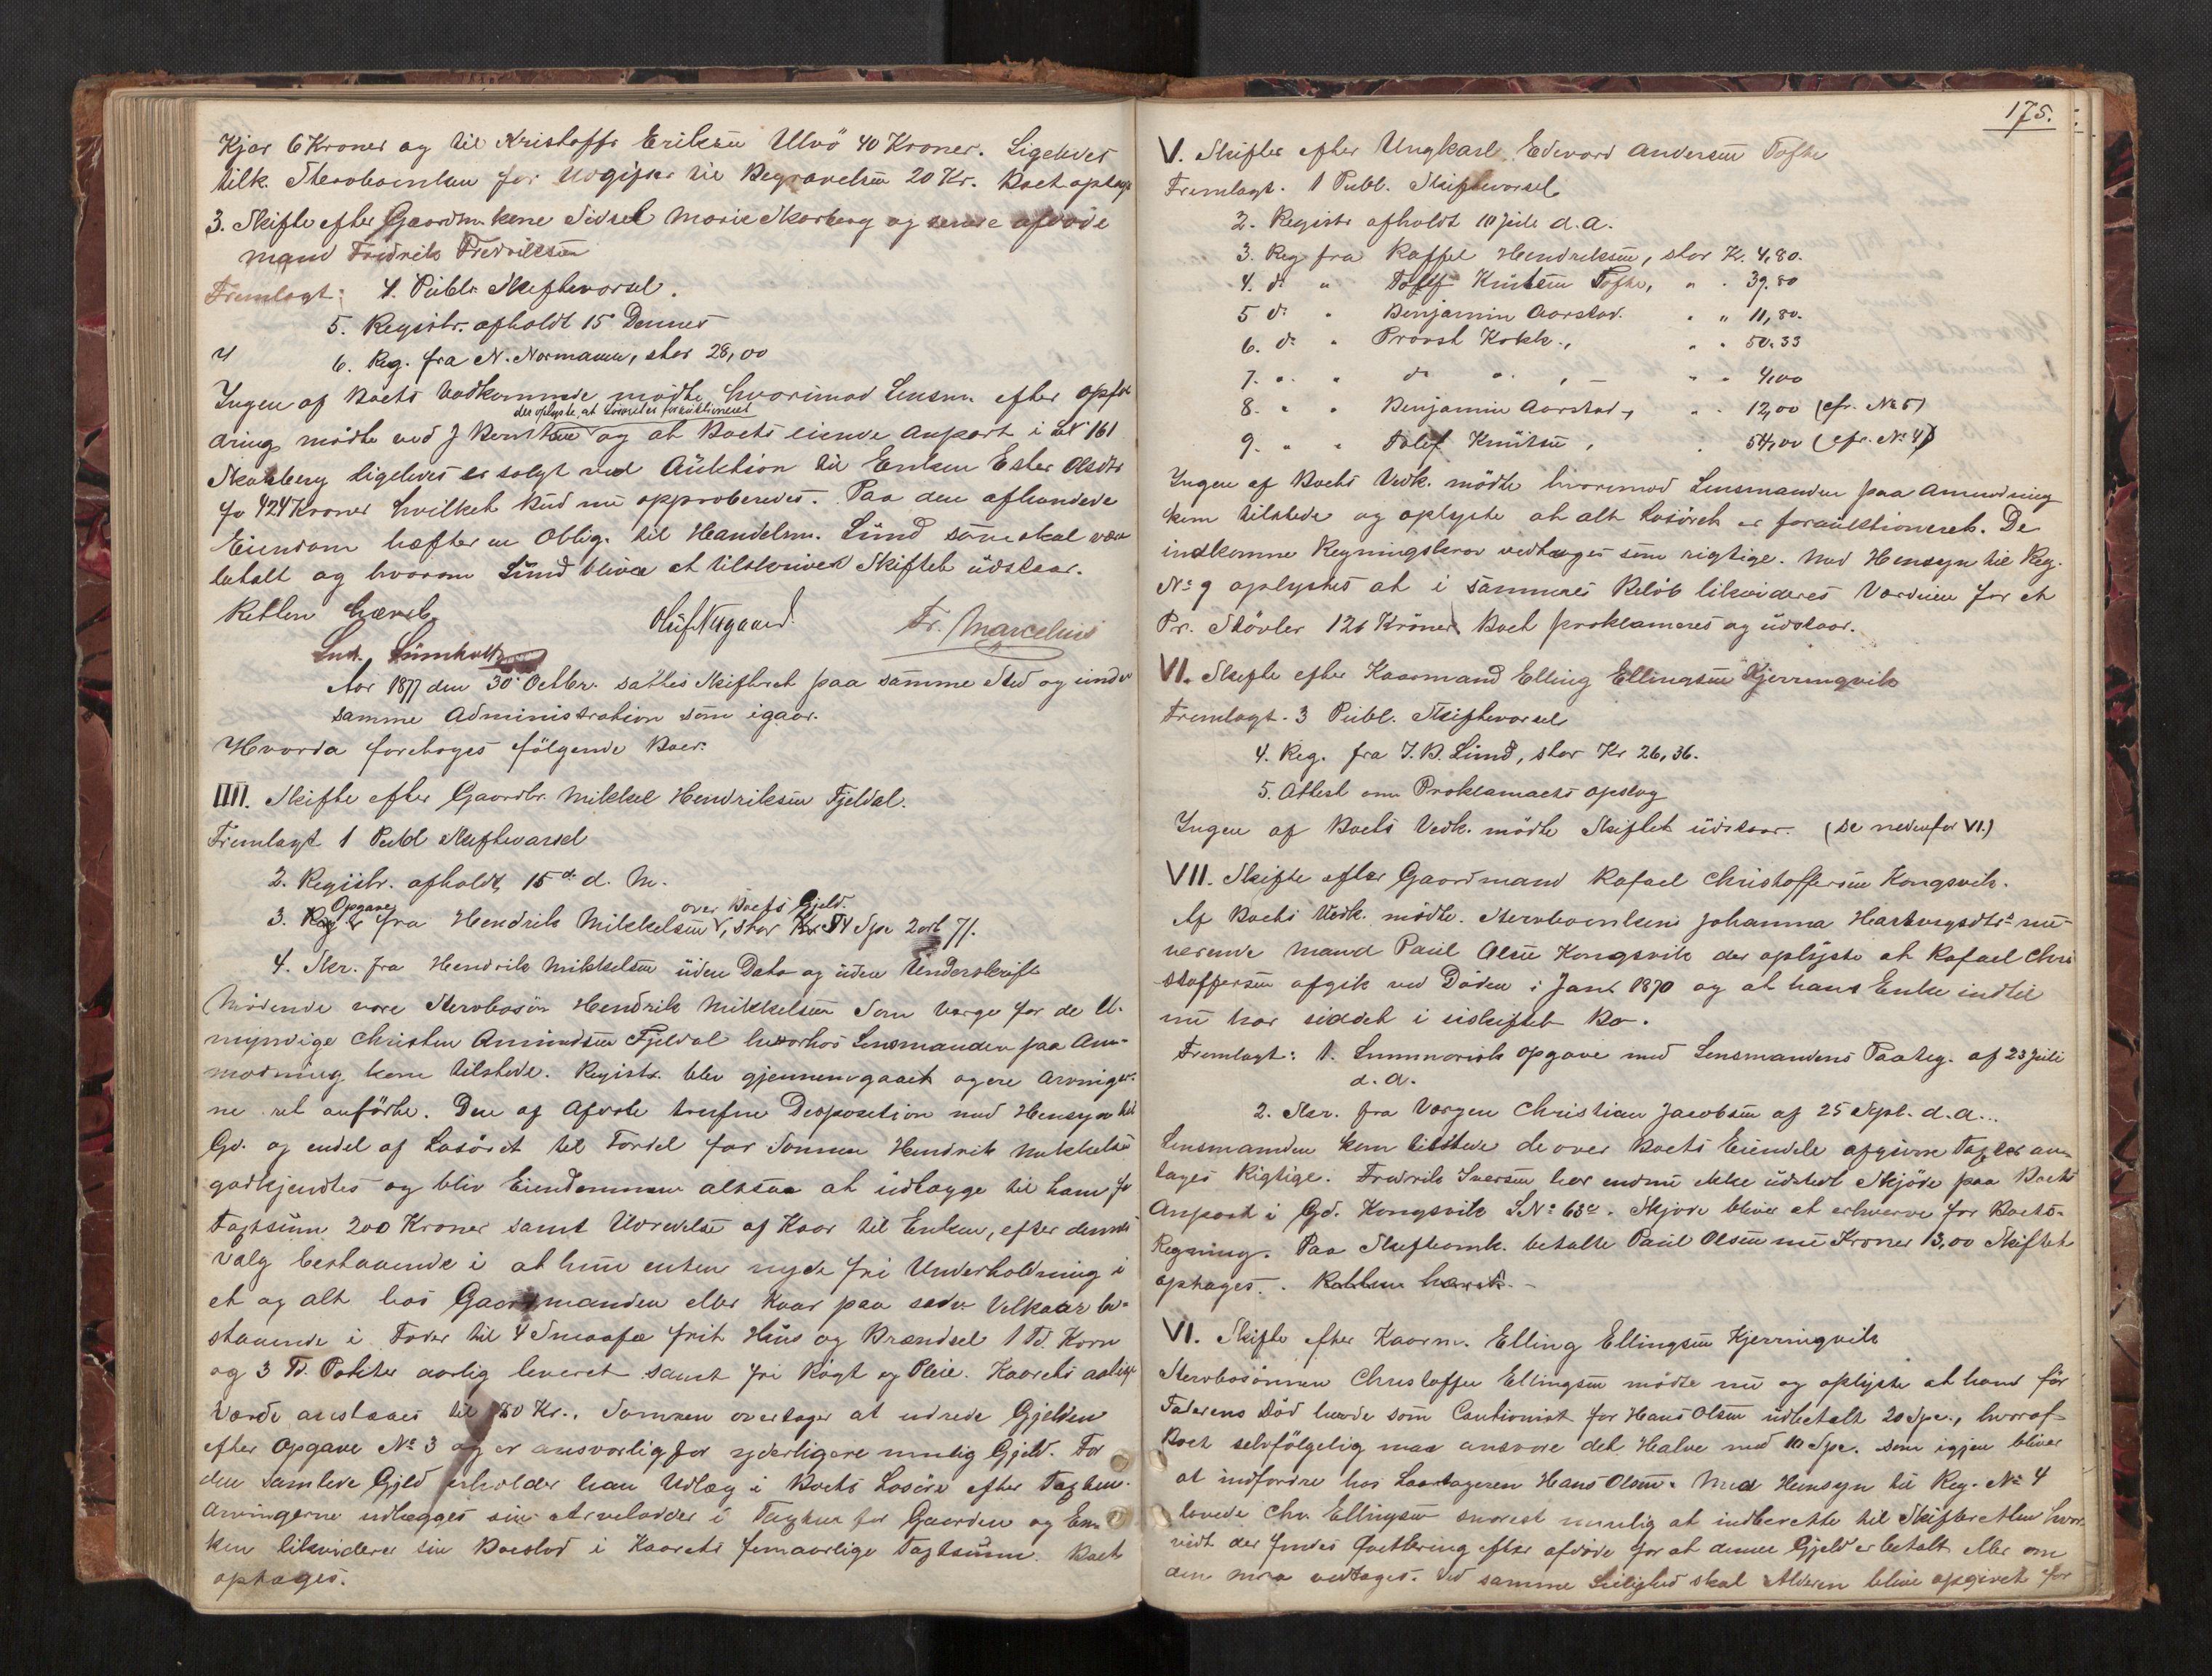 Kjær 6 Kroner og til Kristoffr Eriksen Ulvö 40 Kroner. Ligeledes
tilk. Stervboenken for Udgifter til Begravelsen 20 Kr. Boet optages
3. Skifte efter Gaardm. kone Sidsel Marie Skarberg og hendes afdöde
mand Fredrik Fredriksen
Fremlagt: 4. Publ. Skiftevarsel.
5. Registr. afholdt 15 Dennes
6. Reg. fra N. Normann, stor 28,00
Ingen af Boets Vedkommende mödte, hvorimod Lensm. efter Opfor
der oplyste, at Lösöret er forauktioneret
dring mödte ved J Berntsen og at Boets eiende Anpart i LN 161
Skarberg ligeledes er solgt ved Auktion til Enken Ester Olsdtr
for 424 Kroner hvilket Bud nu approberedes. Paa den afhændede
Eiendom hæfter en Oblig. til Handelsm. Lund som skal være
betalt og hvorom Lund bliver at tilskrives Skiftet udstaar.
Retten hævet
Lud. Sumholt Oluf Nygaard. Fr. Marcelius
Aar 1877 den 30' Octbr. sattes Skifteret paa samme Sted og under
samme Administration som igaar.
Hvorda foretoges fölgende Boer:
IIII. Skifte efter Gaardbr. Mikkel Hendriksen Fjeldal.
Fremlagt 1 Publ Skiftevarsel
2. Registr. afholdt 15de d. M.
Opgave over Boets Gjeld
3. Reg fra Hendrik Mikkelsen, stor Spe 2 ort 7 s.
4. Skr. fra Hendrik Mikkelsen uden Dato og uden Underskrift
Mödende vare Stervbosön Hendrik Mikkelsen Som Værge for de U-
myndige Christen Amundsen Fjeldal hvorhos Lensmanden paa An-
modning kom tilstede. Registr. blev gjennemgaaet og ere Arvinger-
ne ret anförte. Den af Afdöde trufne Disposition med Hensyn til
Gd. og endel af Lösöret til Fordel for Sönnen Hendrik Mikkelsen
godkjendtes og bliv Eiendommen altsaa at udlægge til ham for
Taxtsum 200 Kroner samt Udredelse af Kaar til Enken, efter dennes
Valg bestaaende i at hun enten nyde fri Underholdning i
et og alt hos Gaardmanden eller Kaar paa sædv Velkaar be-
staaende i Foder til 4 Smaafæ frit Hus og Brændsel 1 Td. Korn
og 3 Td. Poteter aarlig leveret samt fri Rögt og Pleie. Kaarets aarlige
Værdi ansloges til 80 Kr. Sönnen overtager at udrede Gjelden
efter Opgave No 3 og er ansvarlig for yderligere mulig Gjeld. For
den samlede Gjeld erholder han Udlæg i Boets Lösöre efter Taxten.
Arvingerne udlægges sine Arvelodder i Taxten for Gaarden og En-
ken likviderer sin Boeslod i Kaarets femaarlige Taxtsum. Boet
optages.
175.
V. Skifte efter Ungkarl Edevard Andersen Tofte
Fremlagt. 1 Publ. Skiftevarsel
2. Registr afholdt 10 Juli d.A.
3. Reg fra Raffel Hendriksen, stor K. 4,80.
4. do " Tollef Knutsen Tofte, " . 39.80
5 do " Benjamin Aarstad. " " 11,80.
6. do " Provst Kokk., " . 50.33
7. " " do " , - " . 4,00
8. " " Benjamin Aarstad, " . 12,00 (cfr. No 5)
9. " " Tolef Knutsen, . 54,00 (cfr. No 4)
Ingen af Boets Vedk. mödte hvorimod Lensmanden paa Anmodning
kom tilstede og oplyste at alt Lösöret er forauktioneret. De
indkomne Regningskrav vedtoges som rigtige. Med Hensyn til Reg.
No 9 oplystes at i sammes Belöb likvideres Værdien for et
Pr. Stövler 12 Kroner Boet proklameres og udstaar.
VI. Skifte efter Kaarmand Elling Ellingsen Kjerringvik
Fremlagt. 3 Publ. Skiftevarsel
4. Reg. fra J. B. Lund, stor Kr 26,36.
5. Attest om Proklamaets opslag
Ingen af Boets Vedk. mödte Skiftet udstaar. (Se nedenfor VI.)
VII. Skifte efter Gaardmand Rafael Christoffersen Kongsvik.
Af Boets Vedk. mödte. Stervboenkens Johanna Hartvigsdtrs nu-
værende Mand Paul Olsen Kongsvik der oplyste at Rafael Chri
stoffersen afgik ved Döden i Janr 1870 og at hans Enke indtil
nu har siddet i uskiftet Bo.
Fremlagt: 1. Summarisk Opgave med Lensmandens Paateg. af 23 Juli
d. A.
2. Skr. fra Værgen Christian Jacobsen af 25 Sept. d.A.
Lensmanden kom tilstede de over Boets Eiendele afgivne Taxter an-
tages Rigtige. Fredrik Iversen har endnu ikke udstedt Skjöde paa Boets
Anpart i Gd. Kongsvik LNo 63a. Skjöde bliver at erhverve for Boets
Regning. Paa Skifteomk. betalte Paul Olsen nu Kroner 13,00 Skiftet
optages. Retten hævet.
VI. Skifte efter Kaarm. Elling Ellingsen Kjerringvik
Stervbosönnen Christoffer Ellingsen mödte nu og oplyste at han för
Faderens Död havde som Cautionist for Hans Olsen udbetalt 20 Spe., hvoraf
Boet selvfölgelig maa ansvare det Halve med 10 Spe. som igjen bliver
at indfordre hos Laantageren Hans Olsen. Med Hensyn til Reg. No 4
lovede Chr. Ellingsen snarest mulig at indberette til Skifteretten hvor-
vidt der findes Qvittering efter afdöde for at denne Gjeld er betalt eller om
den maa vedtages. Ved samme Leilighed skal Alderen blive opgivet for